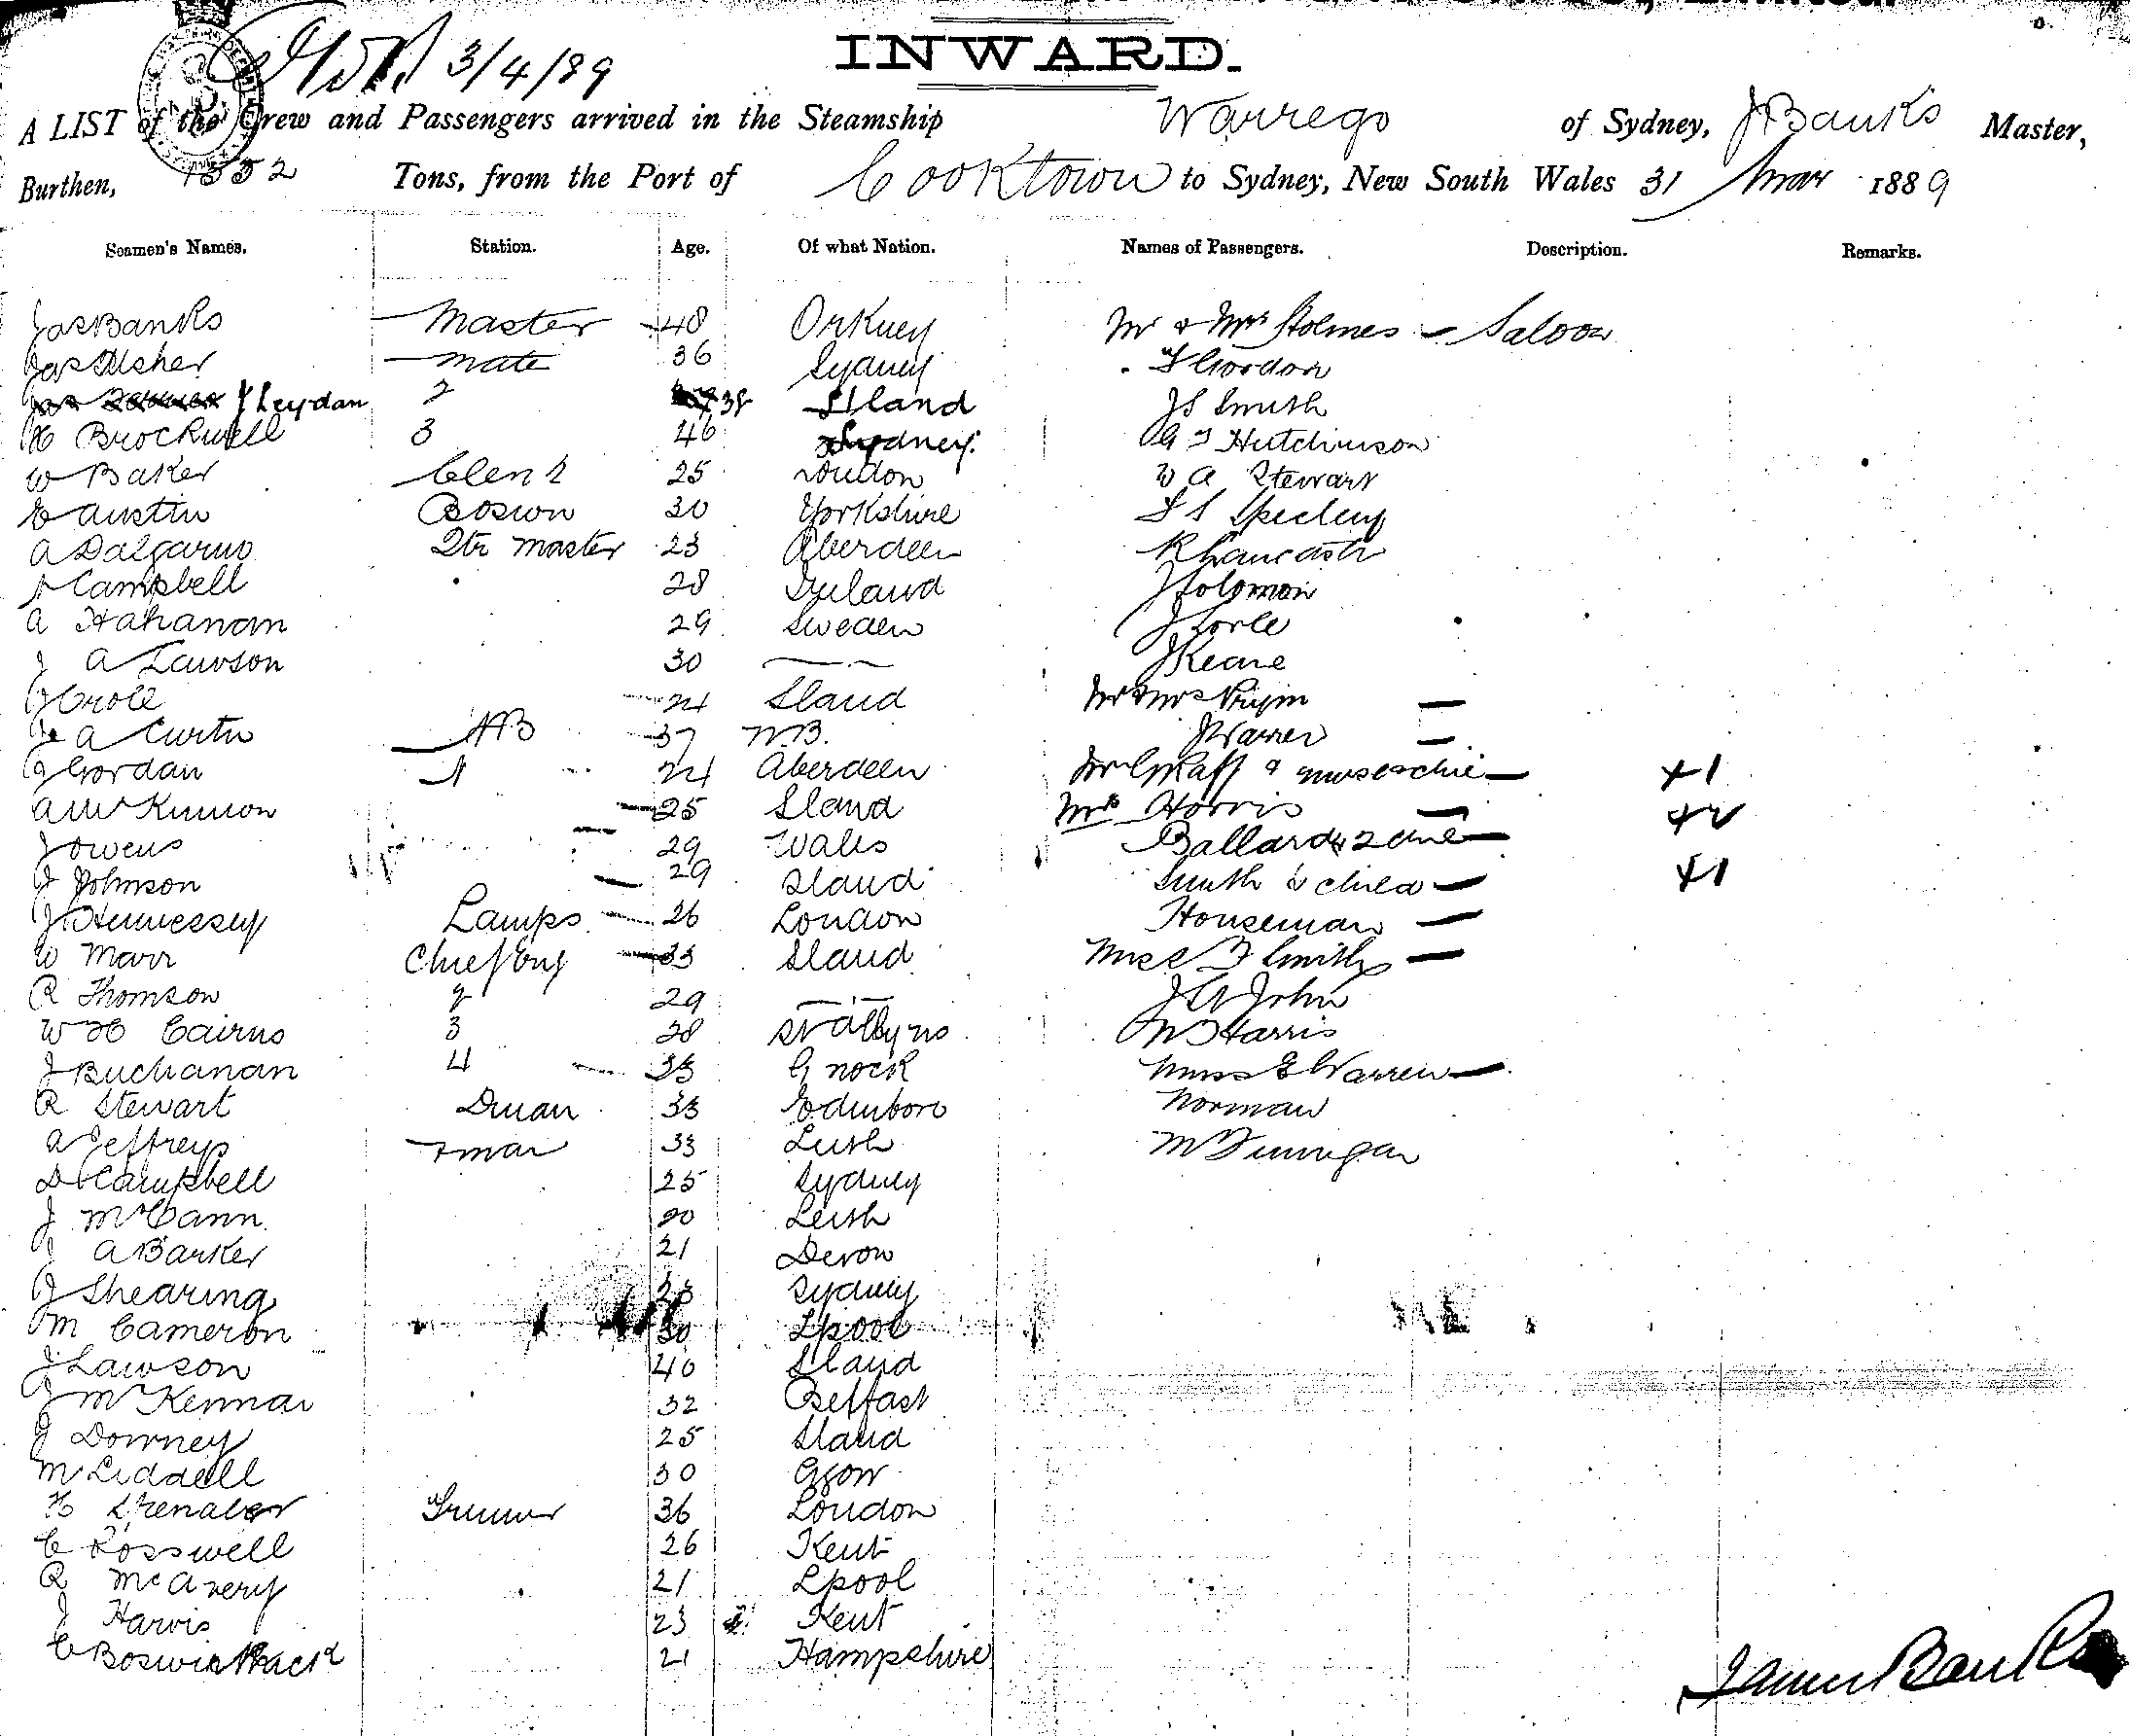 3/4/89
INWARD.
A LIST of the Crew and Passengers arrived in the Steamship Warrego of Sydney, J Banks Master,
Burthen, 1552 Tons, from the Port of Cooktown to Sydney, New South Wales 31 Mar 1889
Seamen's Names. Station. Age. Of what Nation. Names of Passengers. Description. Remarks.
Jas Banks Master 48 Orkney Mr & Mrs Holmes Saloon
Jas Usher Mate 36 Sydney F Gordon
J Leydan 2 38 Sland J S Smith
H Brockwell 3 46 Sydney. G T Hutchinson
W Baker 25 London W A Stewart
E Austin Boswn 30 Yorkshire
A Dalgarno Qtr Master 23 Aberdeen R Lancaster
Campbell 28 Ireland J Solomon
A Hahanom 29 Sweden J Corle
J A Lawson 30 J Keane
J Croll 24 Sland Mr & Mrs
A Curtis AB 37 N.B. J Warren
J Gordan 24 Aberdeen +1
A McKinnon 25 Sland Mrs Horris +2
J Owens 29 Wales Ballard & 2 chil
J Johnson 29 Sland Smith & child +1
J Hennessy Lamps 26 London Houseman
W Marr Chief Eng 33 Sland Miss F Smith
R Thomson 2 29 J A John
W H Cairns 3 28 M J Harris
J Buchanan 4 33 G nock Miss E Warren
R Stewart Dman 33 Edinboro Norman
A Jeffreys Fman 33 Leith M Finnigan
D Campbell 25 Sydney
J McCann 20 Leith
A Barker 21 Devon
J Shearing 23 Sydney
M Cameron 30 Lpool
J Lawson 40 Sland
J McKennar 32 Belfast
J Downey 25 Sland
M Liddell 30 Ggow
H 36 London
C Rosswell 26 Kent
R McAvery 21 Lpool
J Harris 23 Kent
C 21 Hampshire
James Banks